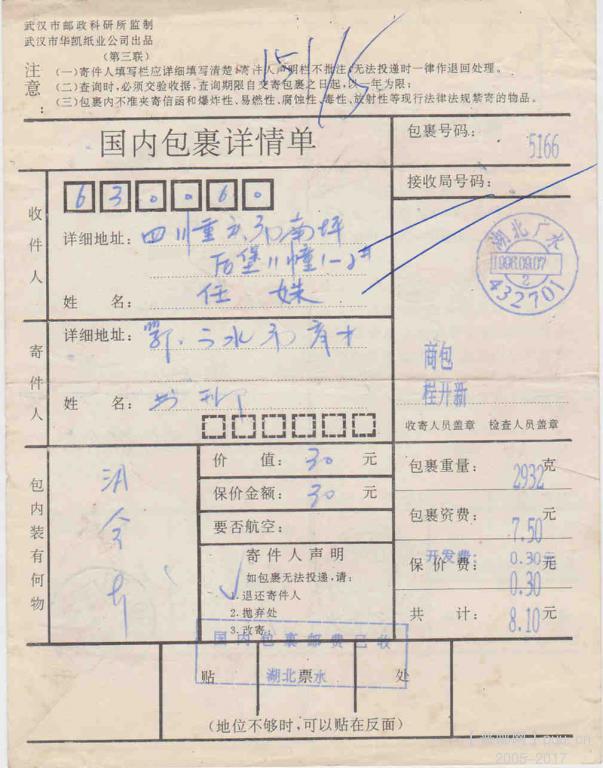 武汉市邮政科研所监制
武汉市华凯纸业公司出品
(第三联)
注意:
(一)寄件人填写栏应详细填写清楚,寄件人声明栏不批注,无法投递时一律作退回处理。
(二)查询时,必须交验收据,查询期限自交寄包裹之日起,以一年为限;
(三)包裹内不准夹寄信函和爆炸性、易燃性、腐蚀性、毒性、放射性等现行法律法规禁寄的物品。
国内包裹详情单
包裹号码: 5166
接收局号码:
收件人
630060
详细地址: 四川重庆南坪
后堡11幢1-2#
姓名: 任姝
湖北广水
1996.09.07
2
432701
寄件人
详细地址: 鄂广水市
姓名:
商包
程开新
收寄人员盖章 检查人员盖章
包内装有何物
价值: 30 元
保价金额: 30 元
要否航空:
寄件人声明
如包裹无法投递,请:
1.退还寄件人
2.抛弃处
3.改寄
包裹重量: 2932 克
包裹资费: 7.50 元
开发费: 0.30元
保价费: 0.30 元
共计: 8.10 元
国内包裹邮费已收
湖北 水
贴 票 处
(地位不够时,可以贴在反面)
2005-2017